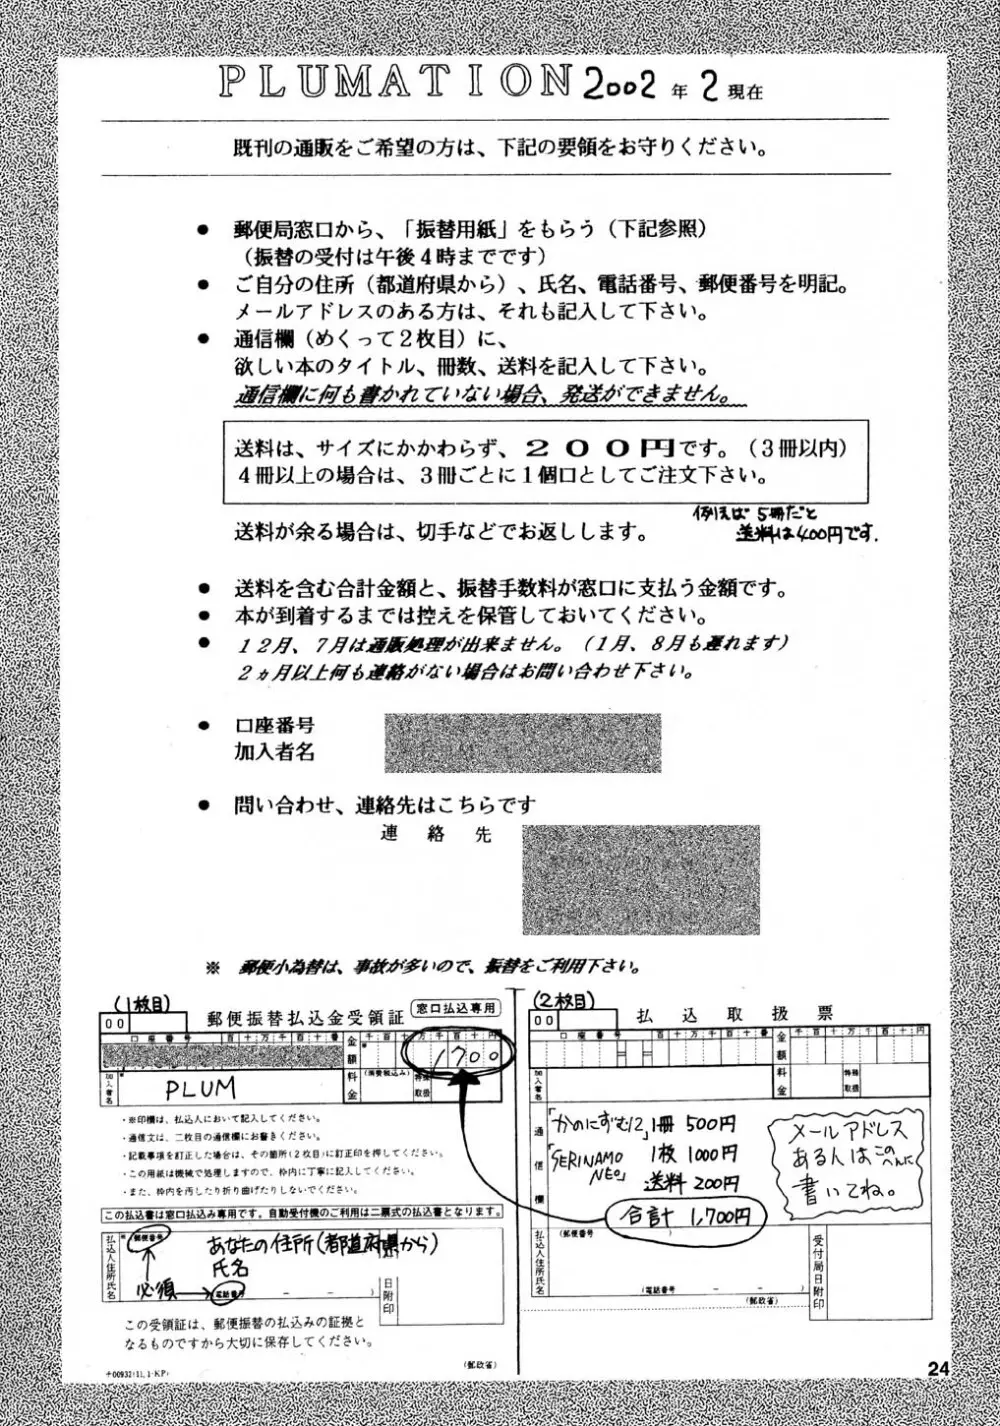 PLUMATION 2002年2現在
既刊の通販をご希望の方は、下記の要領をお守りください。
● 郵便局窓口から、「振替用紙」をもらう（下記参照）
（振替の受付は午後4時までです）
● ご自分の住所（都道府県から）、氏名、電話番号、郵便番号を明記。
メールアドレスのある方は、それも記入して下さい。
● 通信欄（めくって2枚目）に、
欲しい本のタイトル、冊数、送料を記入して下さい。
通信欄に何も書かれていない場合、発送ができません。
送料は、サイズにかかわらず、200円です。（3冊以内）
4冊以上の場合は、3冊ごとに1個口としてご注文下さい。
例えば5冊だと
送料は400円です.
送料が余る場合は、切手などでお返しします。
● 送料を含む合計金額と、振替手数料が窓口に支払う金額です。
● 本が到着するまでは控えを保管しておいてください。
● 12月、7月は通販処理が出来ません。（1月、8月も遅れます）
2ヵ月以上何も連絡がない場合はお問い合わせ下さい。
● 口座番号
加入者名
● 問い合わせ、連絡先はこちらです
連絡先
※ 郵便小為替は、事故が多いので、振替をご利用下さい。
(1枚目)
00
郵便振替払込金受領証
窓口払込専用
口座番号 百十万千百十番
金額
千百十万千百十円
1700
加入者名
PLUM
料金
(消費税込み)
特殊取扱
・※印欄は、払込人において記入してください。
・通信文は、二枚目の通信欄にお書きください。
・記載事項を訂正した場合は、その箇所(2枚目)に訂正印を押してください。
・この用紙は機械で処理しますので、枠内に丁寧に記入してください。
・また、枠内を汚したり折り曲げたりしないでください。
この払込書は窓口払込み専用です。自動受付機のご利用は二票式の払込書となります。
払込人住所氏名
(郵便番号)
あなたの住所(都道府県から)
氏名
必須
(電話番号 - - )
日附印
この受領証は、郵便振替の払込みの証拠と
なるものですから大切に保存してください。
(郵政省)
(2枚目)
00
払込取扱票
口座番号 百十万千百十番
金額
千百十万千百十円
加入者名
料金
特殊取扱
通信欄
「かのにずむ12」1冊 500円
「SERINAMO NEO」 1枚 1000円
送料 200円
合計 1,700円
メールアドレス
ある人はこのへんに
書いてね。
払込人住所氏名
(郵便番号 )
(電話番号 - - )
(郵政省)
受付局日附印
24